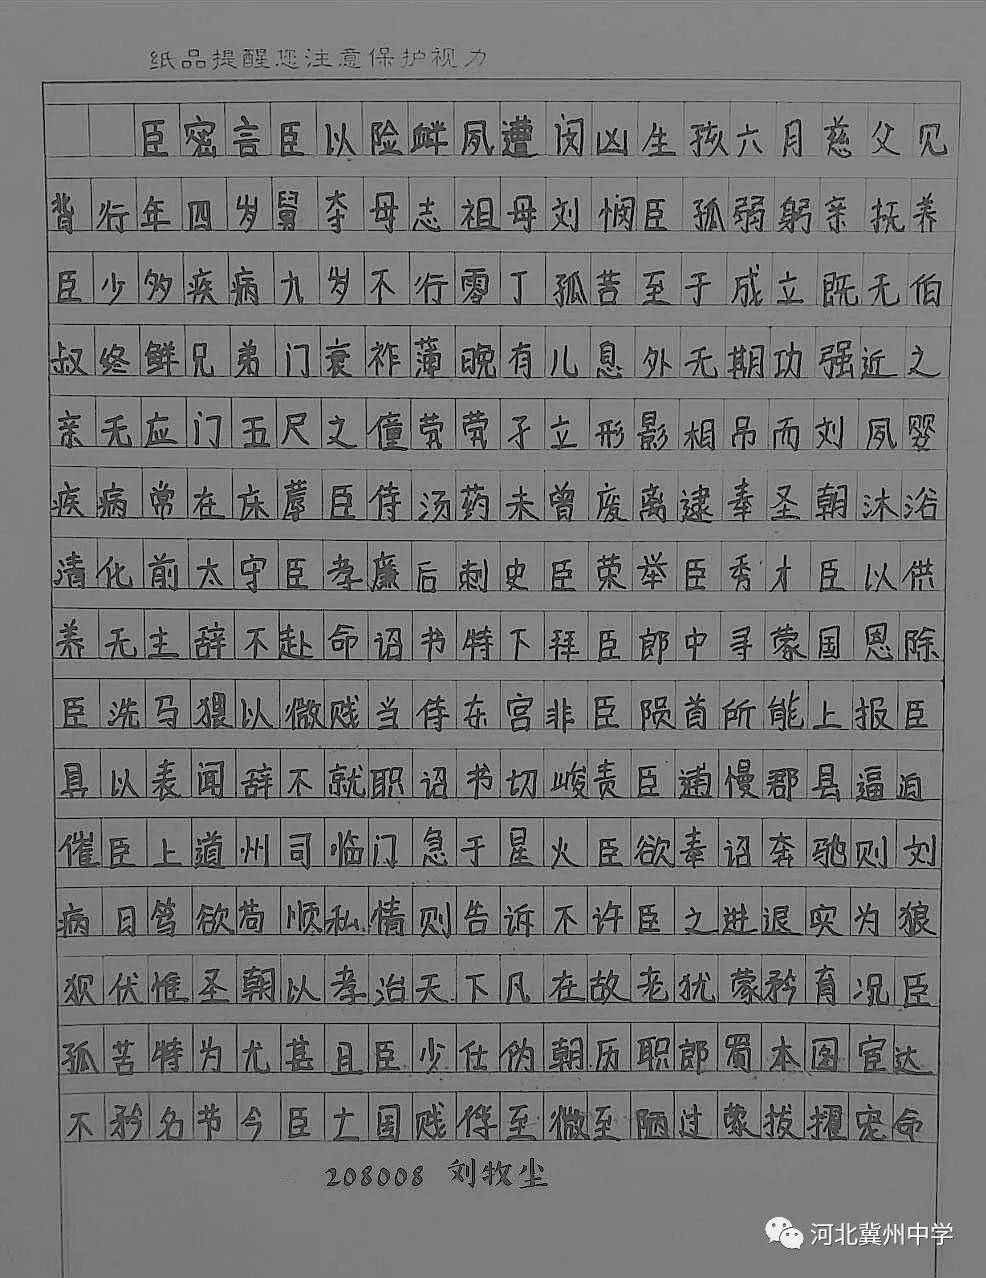 纸品提醒您注意保护视力
臣密言臣以险衅夙遭闵凶生孩六月慈父见
背行年四岁舅夺母志祖母刘悯臣孤弱躬亲抚养
臣少多疾病九岁不行零丁孤苦至于成立既无伯
叔终鲜兄弟门衰祚薄晚有儿息外无期功强近之
亲无应门五尺之僮茕茕孑立形影相吊而刘夙婴
疾病常在床蓐臣侍汤药未曾废离逮奉圣朝沐浴
清化前太守臣孝廉后刺史臣荣举臣秀才臣以供
养无主辞不赴命诏书特下拜臣郎中寻蒙国恩除
臣洗马猥以微贱当侍东宫非臣陨首所能上报臣
具以表闻辞不就职诏书切峻责臣逋慢郡县逼迫
催臣上道州司临门急于星火臣欲奉诏奔驰则刘
病日笃欲苟顺私情则告诉不许臣之进退实为狼
狈伏惟圣朝以孝治天下凡在故老犹蒙矜育况臣
孤苦特为尤甚且臣少仕伪朝历职郎署本图宦达
不矜名节今臣亡国贱俘至微至陋过蒙拔擢宠命
208008 刘牧尘
河北冀州中学